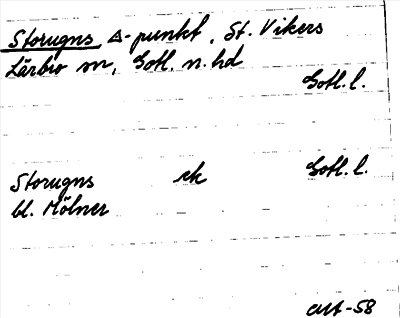 Storugns △-punkt, St. Vikers
Lärbro sn, Gotl. n. hd
Gotl. l.
Storugns ek Gotl. l.
bl. Mölner
-58